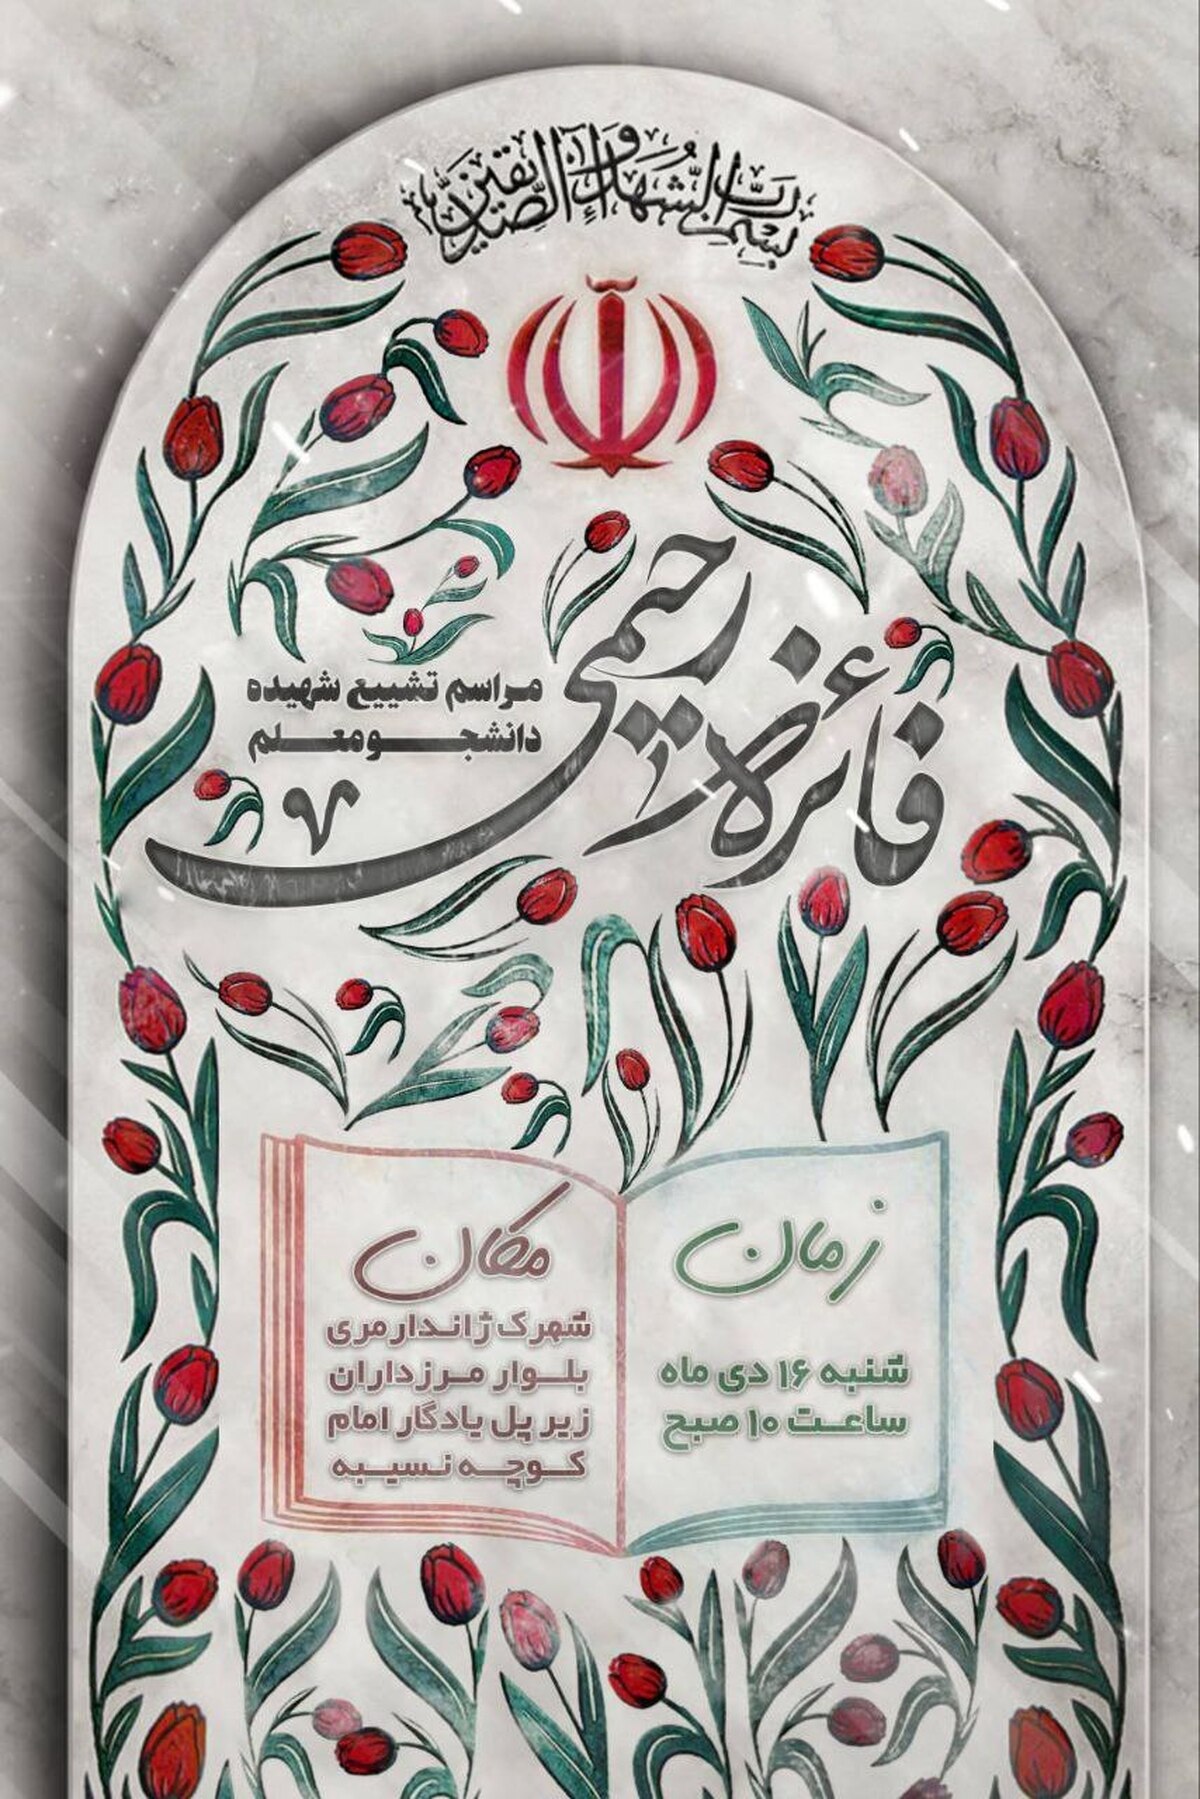 بسم رب الشهداء و الصدیقین
فائزه رحیمی
مراسم تشییع شهیده
دانشجو معلم
زمان
شنبه ۱۶ دی ماه
ساعت ۱۰ صبح
مکان
شهرک ژاندارمری
بلوار مرزداران
زیر پل یادگار امام
کوچه نسیبه